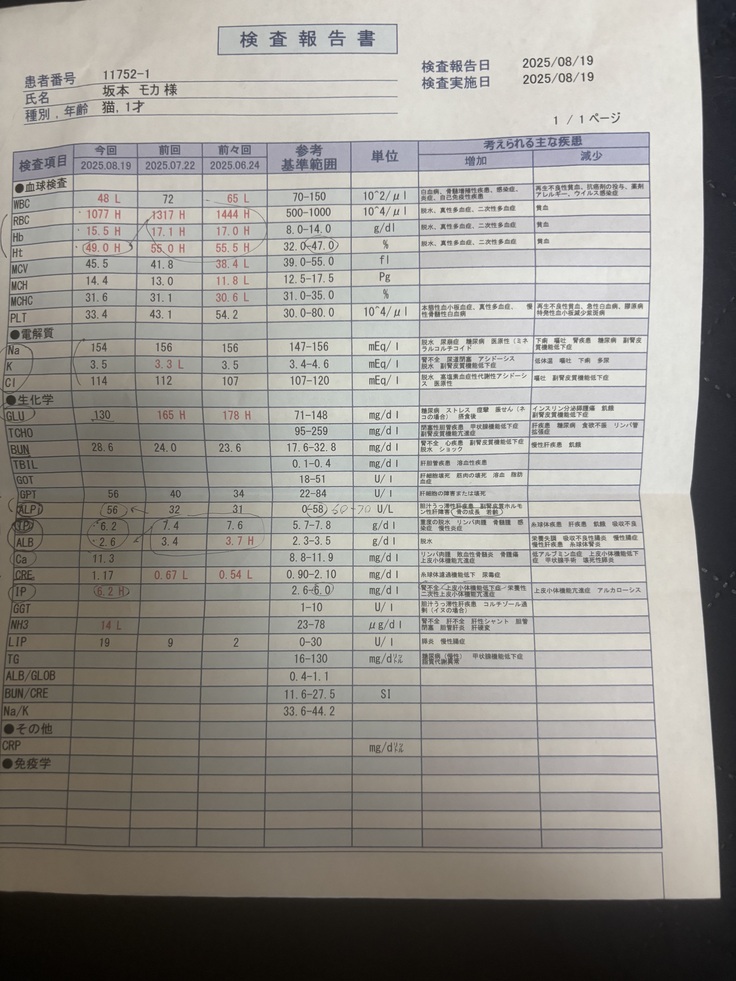 検査報告書
患者番号 11752-1
氏名 坂本 モカ 様
種別,年齢 猫, 1才
検査報告日 2025/08/19
検査実施日 2025/08/19
1 / 1 ページ
検査項目 今回 2025.08.19 前回 2025.07.22 前々回 2025.06.24 参考基準範囲 単位 考えられる主な疾患 増加 減少
●血球検査
WBC 48 L 72 65 L 70-150 10^2/μl 白血病、骨髄増殖性疾患、感染症、炎症、自己免疫性疾患 再生不良性貧血、抗癌剤の投与、薬剤アレルギー、ウイルス感染症
RBC 1077 H 1317 H 1444 H 500-1000 10^4/μl 脱水、真性多血症、二次性多血症 貧血
Hb 15.5 H 17.1 H 17.0 H 8.0-14.0 g/dl 脱水、真性多血症、二次性多血症 貧血
Ht 49.0 H 55.0 H 55.5 H 32.0-47.0 % 脱水、真性多血症、二次性多血症 貧血
MCV 45.5 41.8 38.4 L 39.0-55.0 fl
MCH 14.4 13.0 11.8 L 12.5-17.5 Pg
MCHC 31.6 31.1 30.6 L 31.0-35.0 %
PLT 33.4 43.1 54.2 30.0-80.0 10^4/μl 本態性血小板血症、真性多血症、慢性骨髄性白血病 再生不良性貧血、急性白血病、膠原病 特発性血小板減少紫斑病
●電解質
Na 154 156 156 147-156 mEq/l 脱水 尿崩症 糖尿病 医原性（ミネラルコルチコイド 下痢 嘔吐 腎疾患 糖尿病 副腎皮質機能低下症
K 3.5 3.3 L 3.5 3.4-4.6 mEq/l 腎不全 尿道閉塞 アシドーシス 脱水 副腎皮質機能低下症 低体温 嘔吐 下痢 多尿
Cl 114 112 107 107-120 mEq/l 脱水 高塩素血症性代謝性アシドーシス 医原性 嘔吐 副腎皮質機能低下症
●生化学
GLU 130 165 H 178 H 71-148 mg/dl 糖尿病 ストレス 痙攣 振せん（ネコの場合） 摂食後 インスリン分泌膵腫瘍 飢餓 副腎皮質機能低下症
TCHO 95-259 mg/dl 閉塞性胆管疾患 甲状腺機能低下症 副腎皮質機能亢進症 肝疾患 糖尿病 食欲不振 リンパ管拡張症
BUN 28.6 24.0 23.6 17.6-32.8 mg/dl 腎不全 心疾患 副腎皮質機能低下症 脱水 ショック 慢性肝疾患 飢餓
TBIL 0.1-0.4 mg/dl 肝胆管疾患 溶血性疾患
GOT 18-51 U/l 肝細胞壊死 筋肉の壊死 溶血 脂肪血症
GPT 56 40 34 22-84 U/l 肝細胞の障害または壊死
ALP 56 32 31 0-58 50-70 U/L 胆汁うっ滞性肝疾患 副腎皮質ホルモン性肝障害（骨の成長 若齢）
TP 6.2 7.4 7.6 5.7-7.8 g/dl 重度の脱水 リンパ肉腫 骨髄腫 感染症 糸球体疾患 肝疾患 飢餓 吸収不良
ALB 2.6 3.4 3.7 H 2.3-3.5 g/dl 脱水 栄養失調 吸収不良性腸炎 慢性腸症 慢性肝疾患 糸球体腎炎
Ca 11.3 8.8-11.9 mg/dl リンパ肉腫 敗血性骨髄炎 骨腫瘍 上皮小体機能亢進症 低アルブミン血症 上皮小体機能低下症 甲状腺手術 壊死性膵炎
CRE 1.17 0.67 L 0.54 L 0.90-2.10 mg/dl 糸球体濾過機能低下 尿毒症
IP 6.2 H 2.6-6.0 mg/dl 腎不全 上皮小体機能低下症 栄養性二次性上皮小体機能亢進症 上皮小体機能亢進症 アルカローシス
GGT 1-10 U/l 胆汁うっ滞性肝疾患 コルチゾール過剰（イヌの場合）
NH3 14 L 23-78 μg/dl 腎不全 肝不全 肝性シャント 胆管閉塞 胆管肝炎 肝硬変
LIP 19 9 2 0-30 U/l 膵炎 慢性腸症
TG 16-130 mg/dl 糖尿病（慢性） 甲状腺機能低下症 脂質代謝異常
ALB/GLOB 0.4-1.1
BUN/CRE 11.6-27.5 SI
Na/K 33.6-44.2
●その他
CRP mg/dl
●免疫学